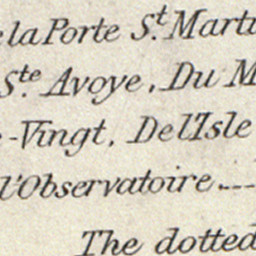 e la Porte St. Marti
Ste Avoye, Du M
-Vingt. De l'Isle
l'Observatoire
The dotted